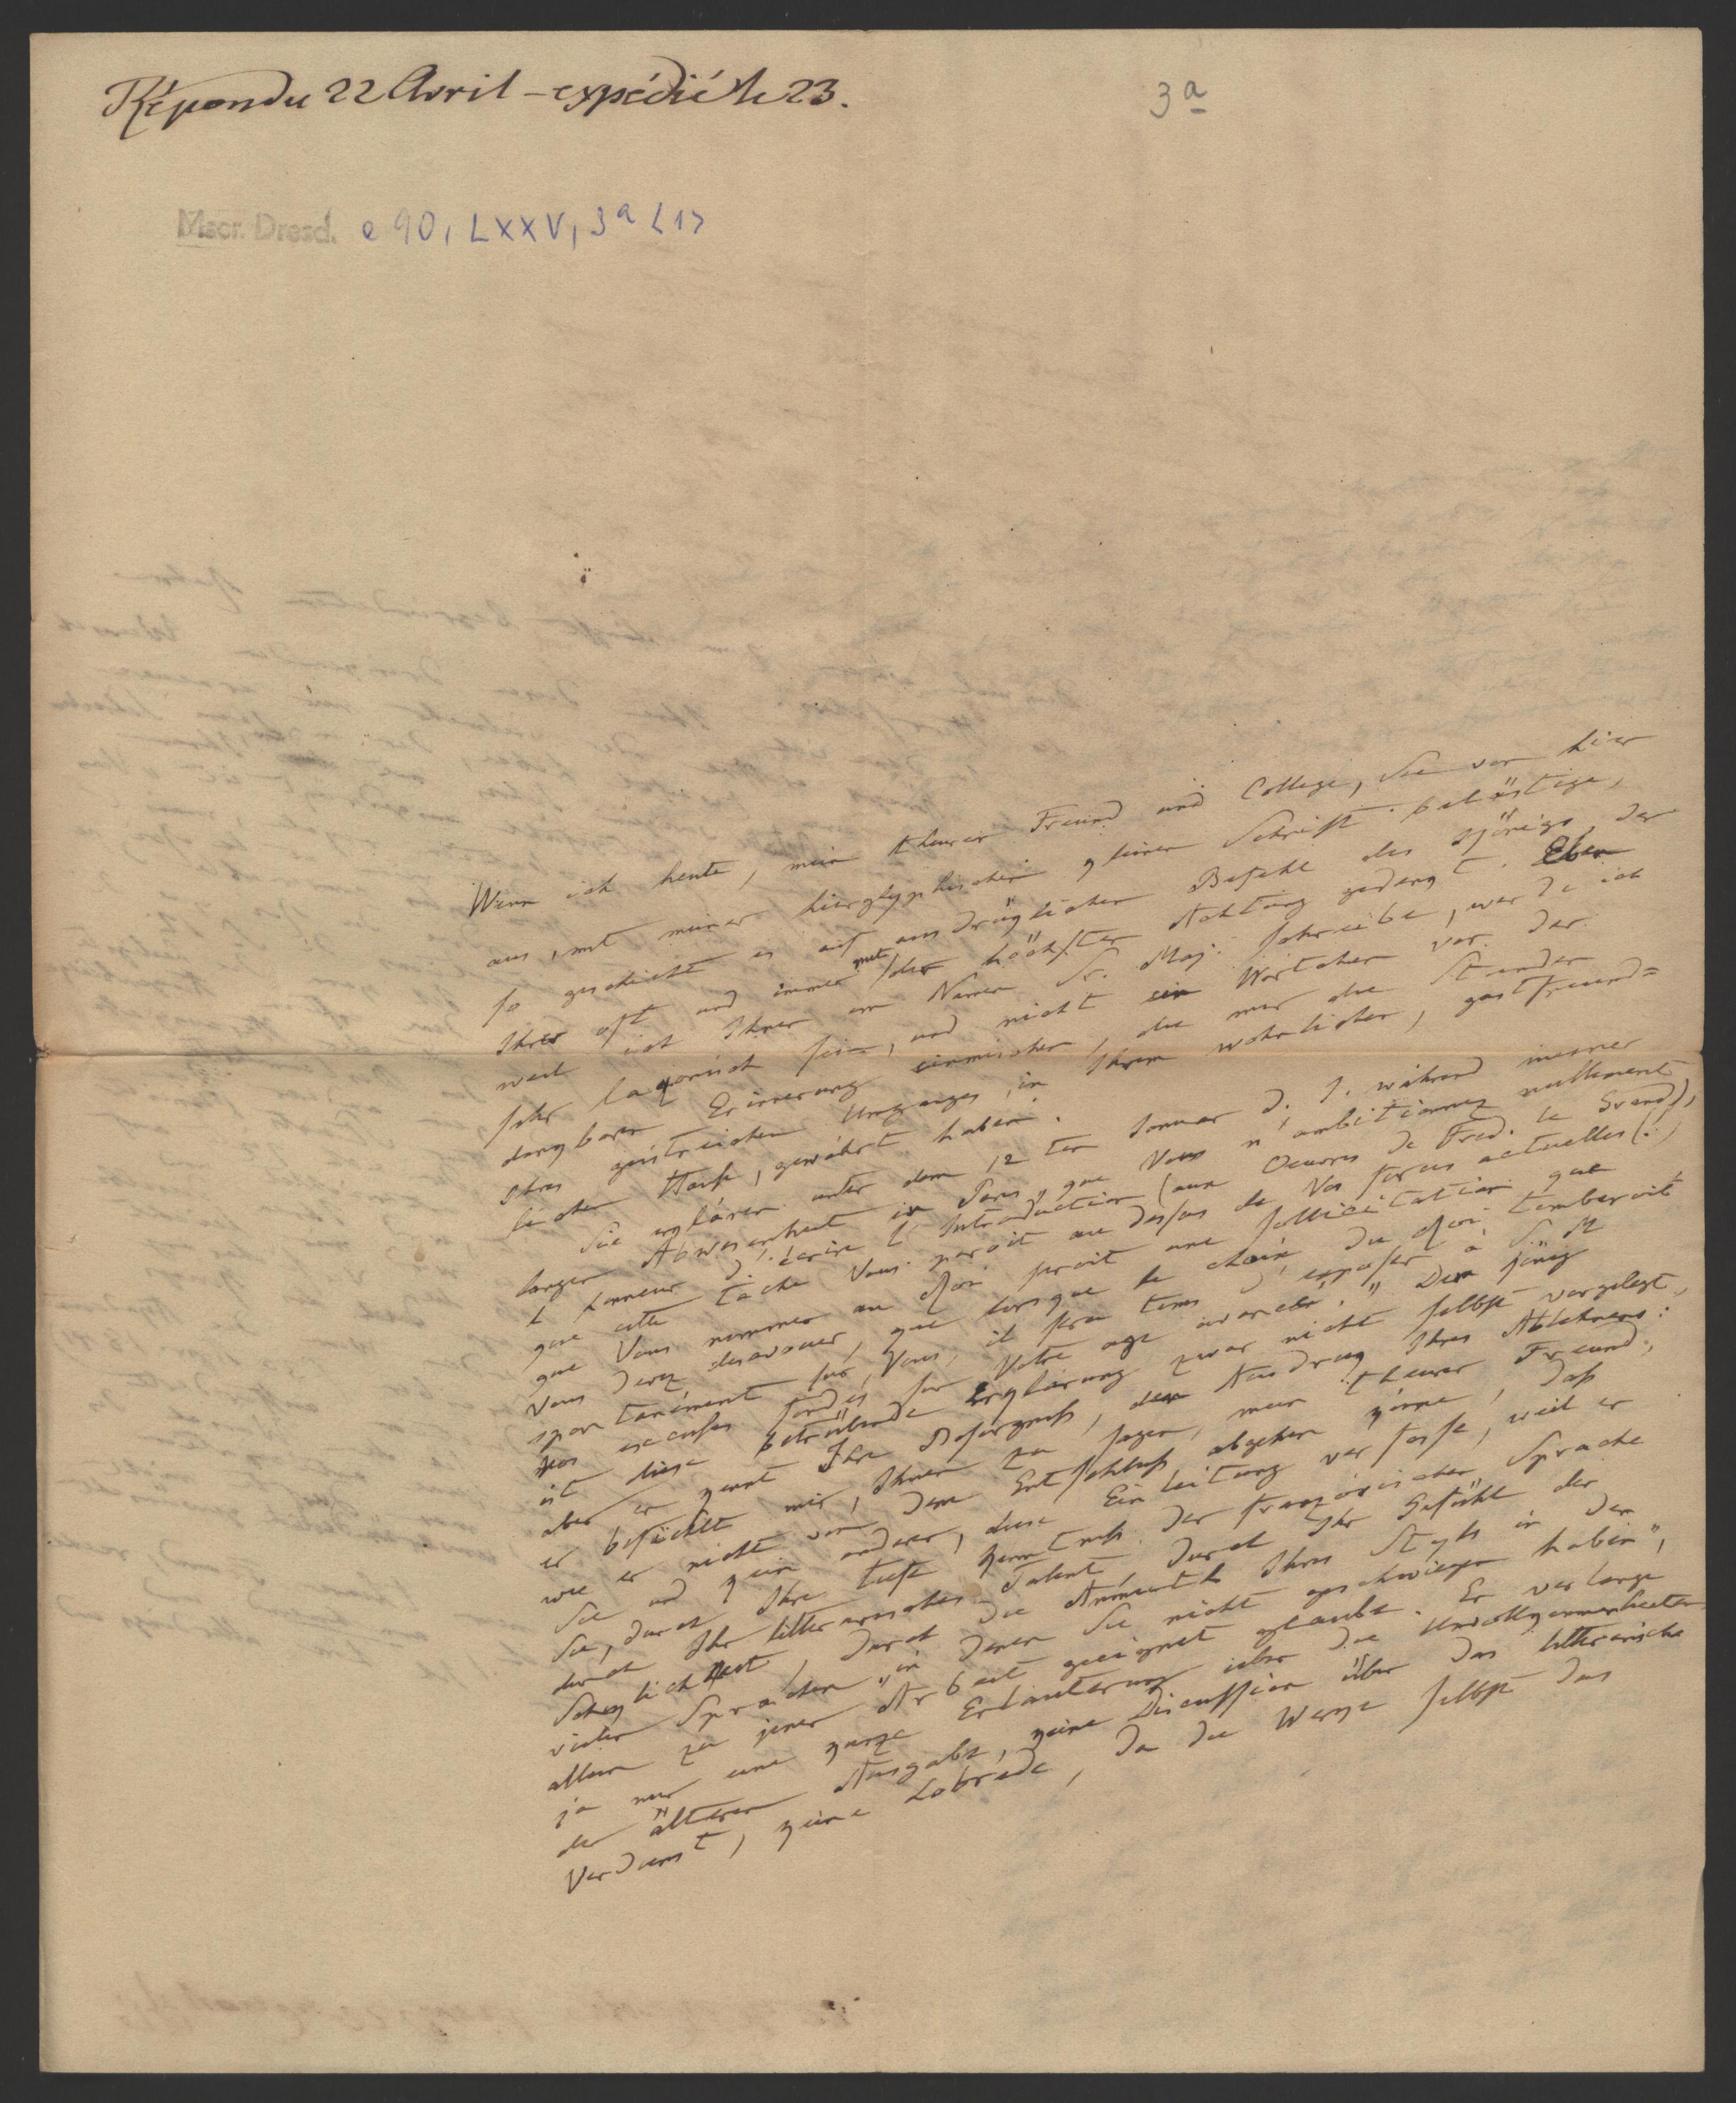 Répondu 22 Avril – expédié le 23.
3a
Mscr. Dresd. e 90, LXXV, 3a <1>
Wenn ich heute, mein theurer Freund und College, Sie von hier
aus, mit meiner hieroglyphischen kleinen Schrift belästige,
so geschieht es auf ausdrüklichen Befehl des Königs, der
Ihrer oft und immer mit der höchsten Achtung gedenkt. Eben
weil ich Ihnen im Namen Sr. Maj. schreibe, werde ich
sehr lakonisch sein, und nicht ein Wörtchen von der
dankbaren Erinnerung einmischen, die mir die Stunden
Ihres geistreichen Umganges, in Ihrem wohnlichen, gastfreund=
lichen Hause, gewährt haben.
Sie erklären unter dem 12ten Januar d. J. während meiner
langen Abwesenheit in Paris, que Vous n'ambitionnez nullement
l'honneur d'écrire l'Introduction (aux Oeuvres de Fred. le Grand),
que cette tâche Vous paroit au dessus de Vos forces actuelles (!)
que Vous nommer au Roi seroit une sollicitation que
Vous devez desavouer, que lorsque le choix du Roi tomberoit
spontanément sur Vous, il sera tems d'exposer à S. M
vos excuses fondées sur Votre age avancé." Dem König
ist diese betrübende Erklärung zwar nicht selbst vorgelegt,
aber er kennt Ihre Besorgniss, den Ausdruk Ihres Ablehnens:
er befiehlt mir, Ihnen zu sagen, mein theurer Freund,
wie er nicht von dem Entschluss abgehen könne, dass
Sie und kein anderer, diese Einleitung verfasse, weil er
Sie, durch Ihre tiefe Kenntniss der französischen Sprache
durch Ihr litterarisches Talent, durch Ihr Gefühl der
Schiklichkeit, durch die Anmuth Ihres Styls in den
vielen Sprachen "in denen Sie nicht geschwiegen haben",
allein zu jener Arbeit geeignet glaube. Er verlange
ja nur eine kurze Erläuterung über die Unvollkommenheiten
der älteren Ausgabe, keine Discussion über das litterarische
Verdienst, keine Lobrede, da die Werke selbst das